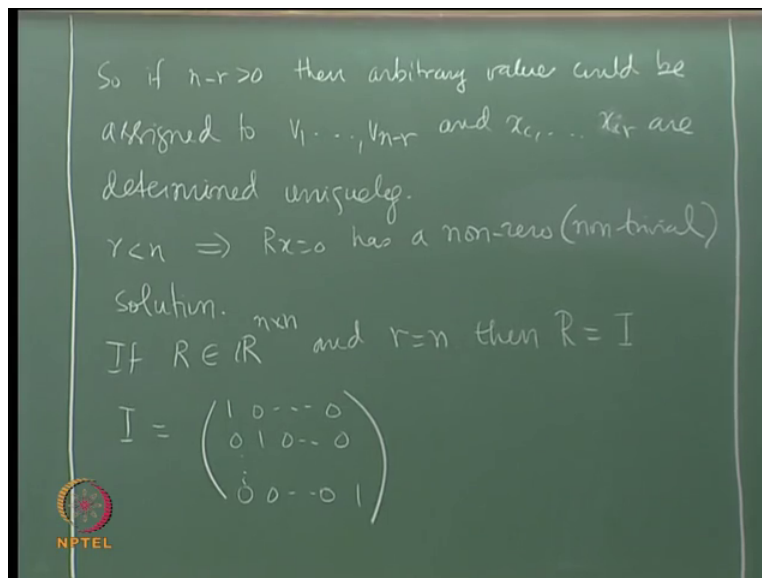 So if n-r>0 then arbitrary values could be
assigned to v₁ . . . , vₙ₋ᵣ and x_c₁ . . . x_iᵣ are
determined uniquely.
r<n ⇒ Rx=0 has a non-zero (non-trivial)
solution.
If R ∈ ℝⁿˣⁿ and r=n then R = I
I = ( 1 0 - - - 0
0 1 0 - - 0
⋮
0 0 - - 0 1 )
NPTEL